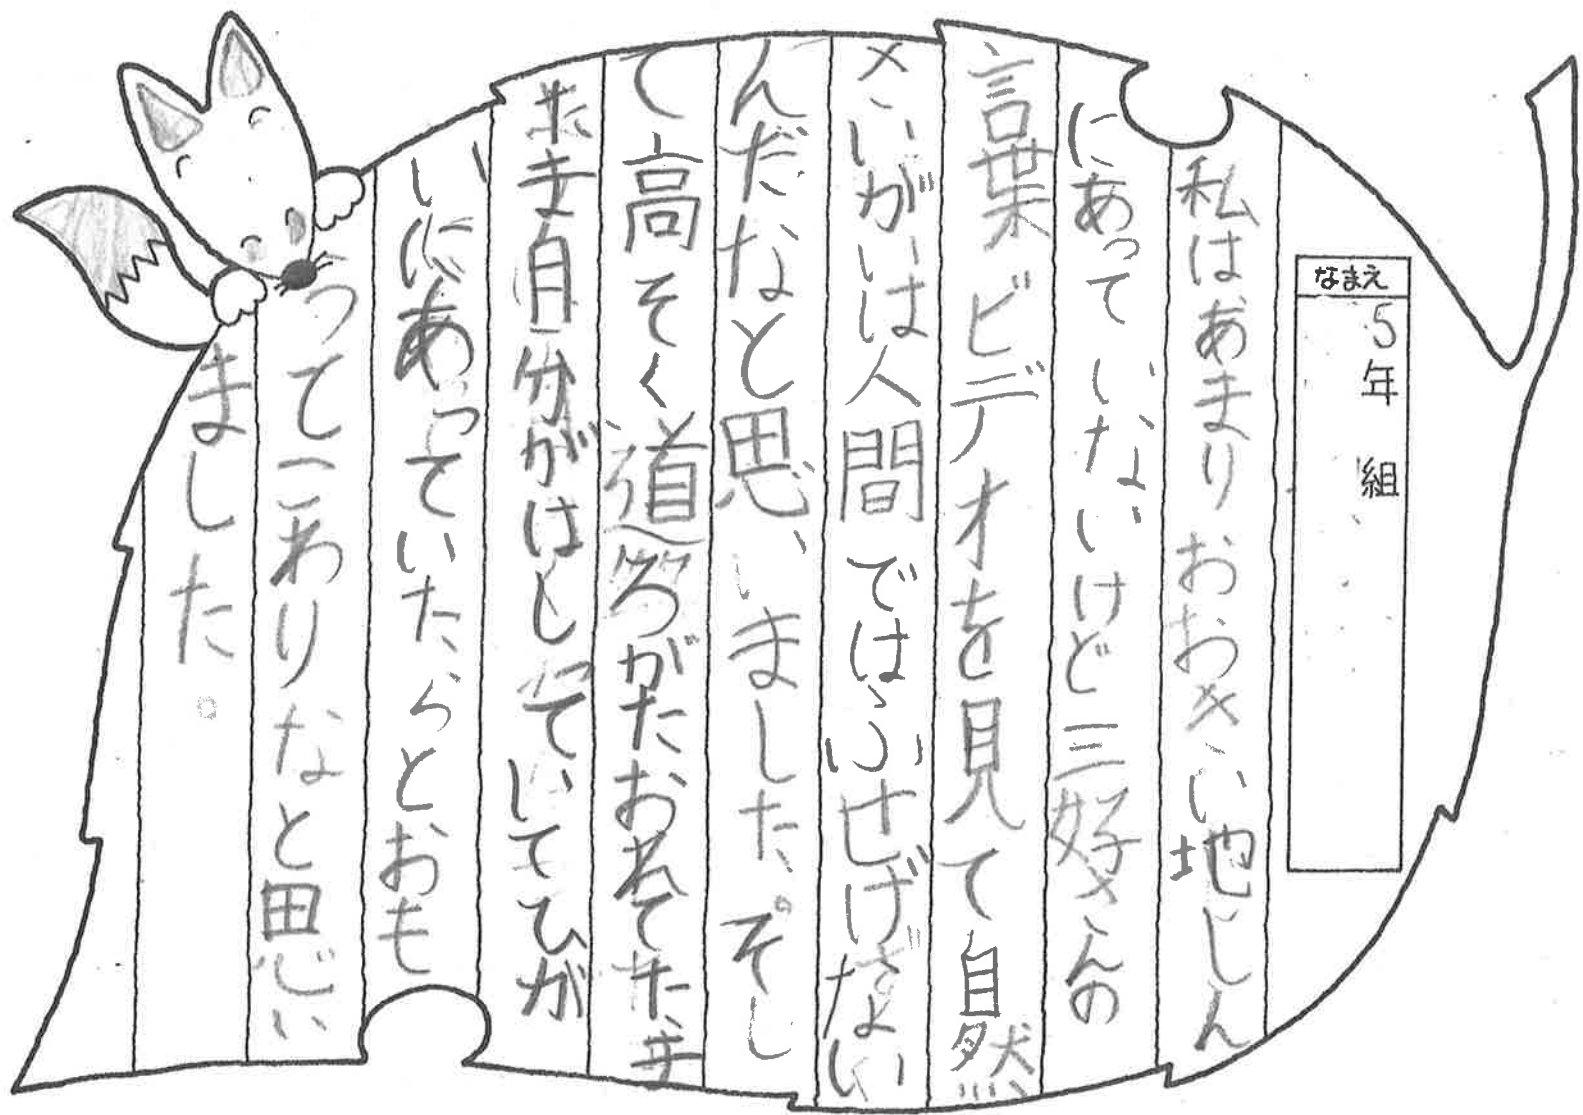 なまえ
5年 組
私はあまりおおきい地しん
にあっていないけど三好さんの
言葉ビデオを見て自然
さいがいは人間ではふせげない
んだなと思いました。そし
て高そく道ろがたおれてたま
たま自分がはしっていてひが
いにあっていたらとおも
ってこわりなと思い
ました。